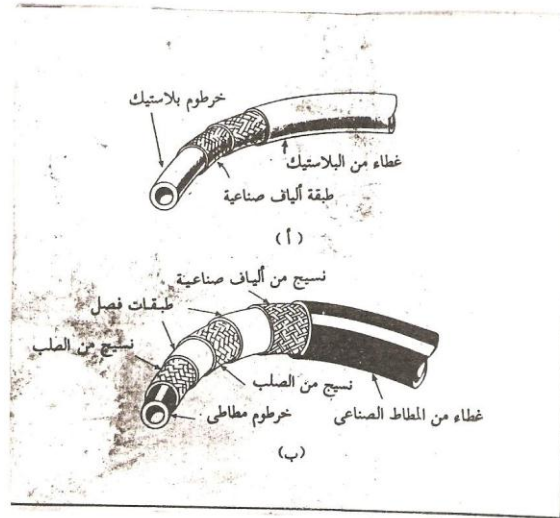 خرطوم بلاستيك
غطاء من البلاستيك
طبقة ألياف صناعية
(أ)
نسيج من ألياف صناعية
طبقات فصل
نسيج من الصلب
نسيج من الصلب
خرطوم مطاطى
غطاء من المطاط الصناعى
(ب)